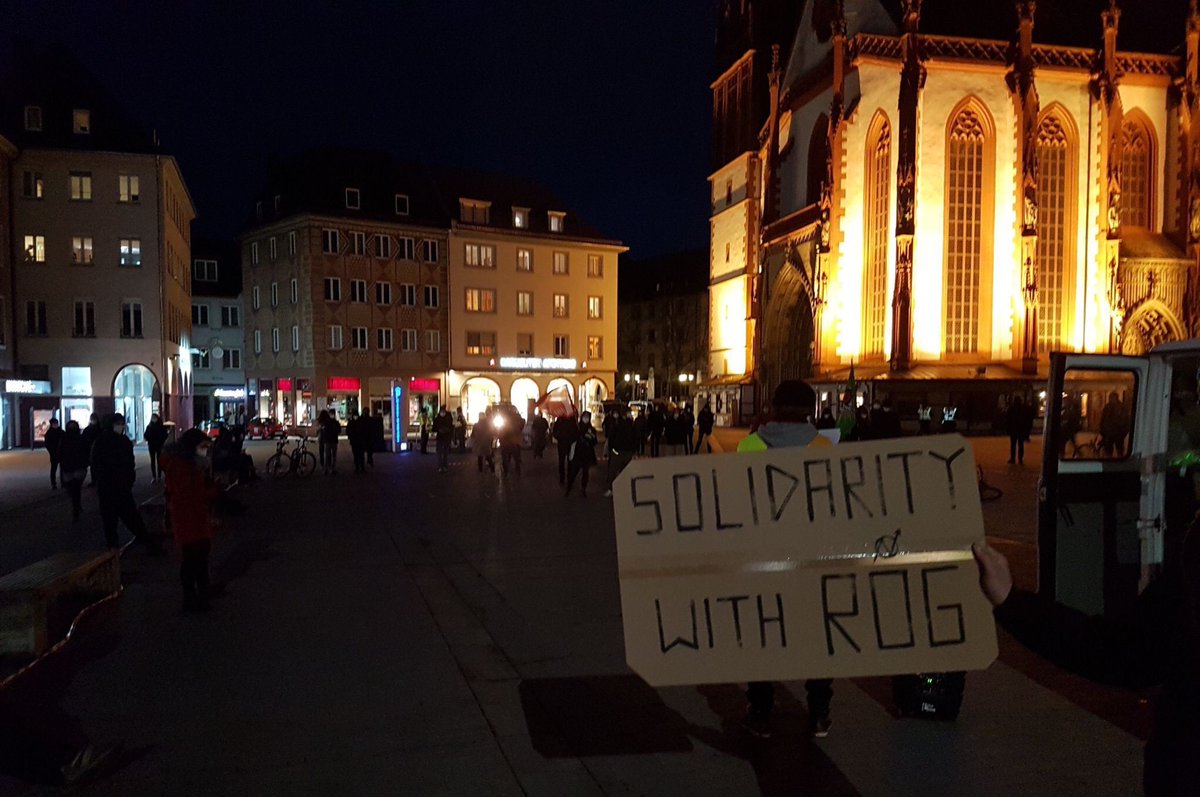 SOLIDARITY
WITH ROG